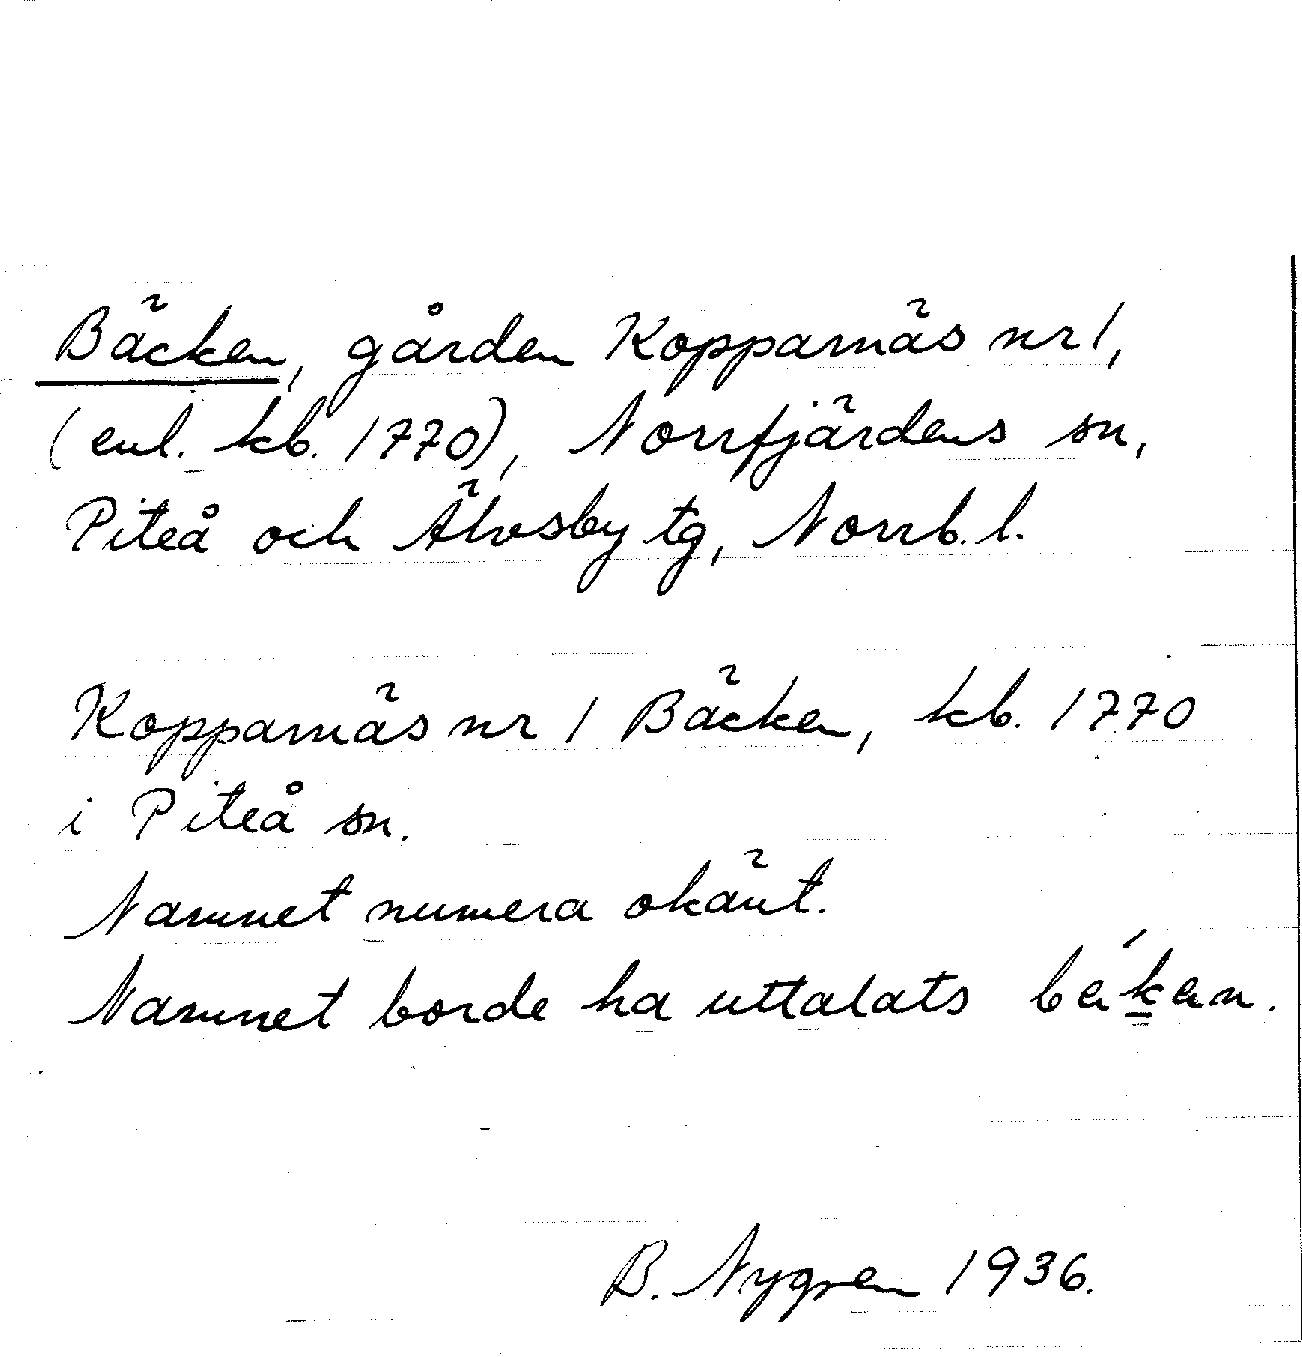 Bäcken, gården Kopparnäs nr 1,
(enl. kb. 1770), Norrfjärdens sn,
Piteå och Älvsby tg, Norrb. l.
Kopparnäs nr 1 Bäcken, kb. 1770
i Piteå sn.
Namnet numera okänt.
Namnet borde ha uttalats
B. Nygren 1936.